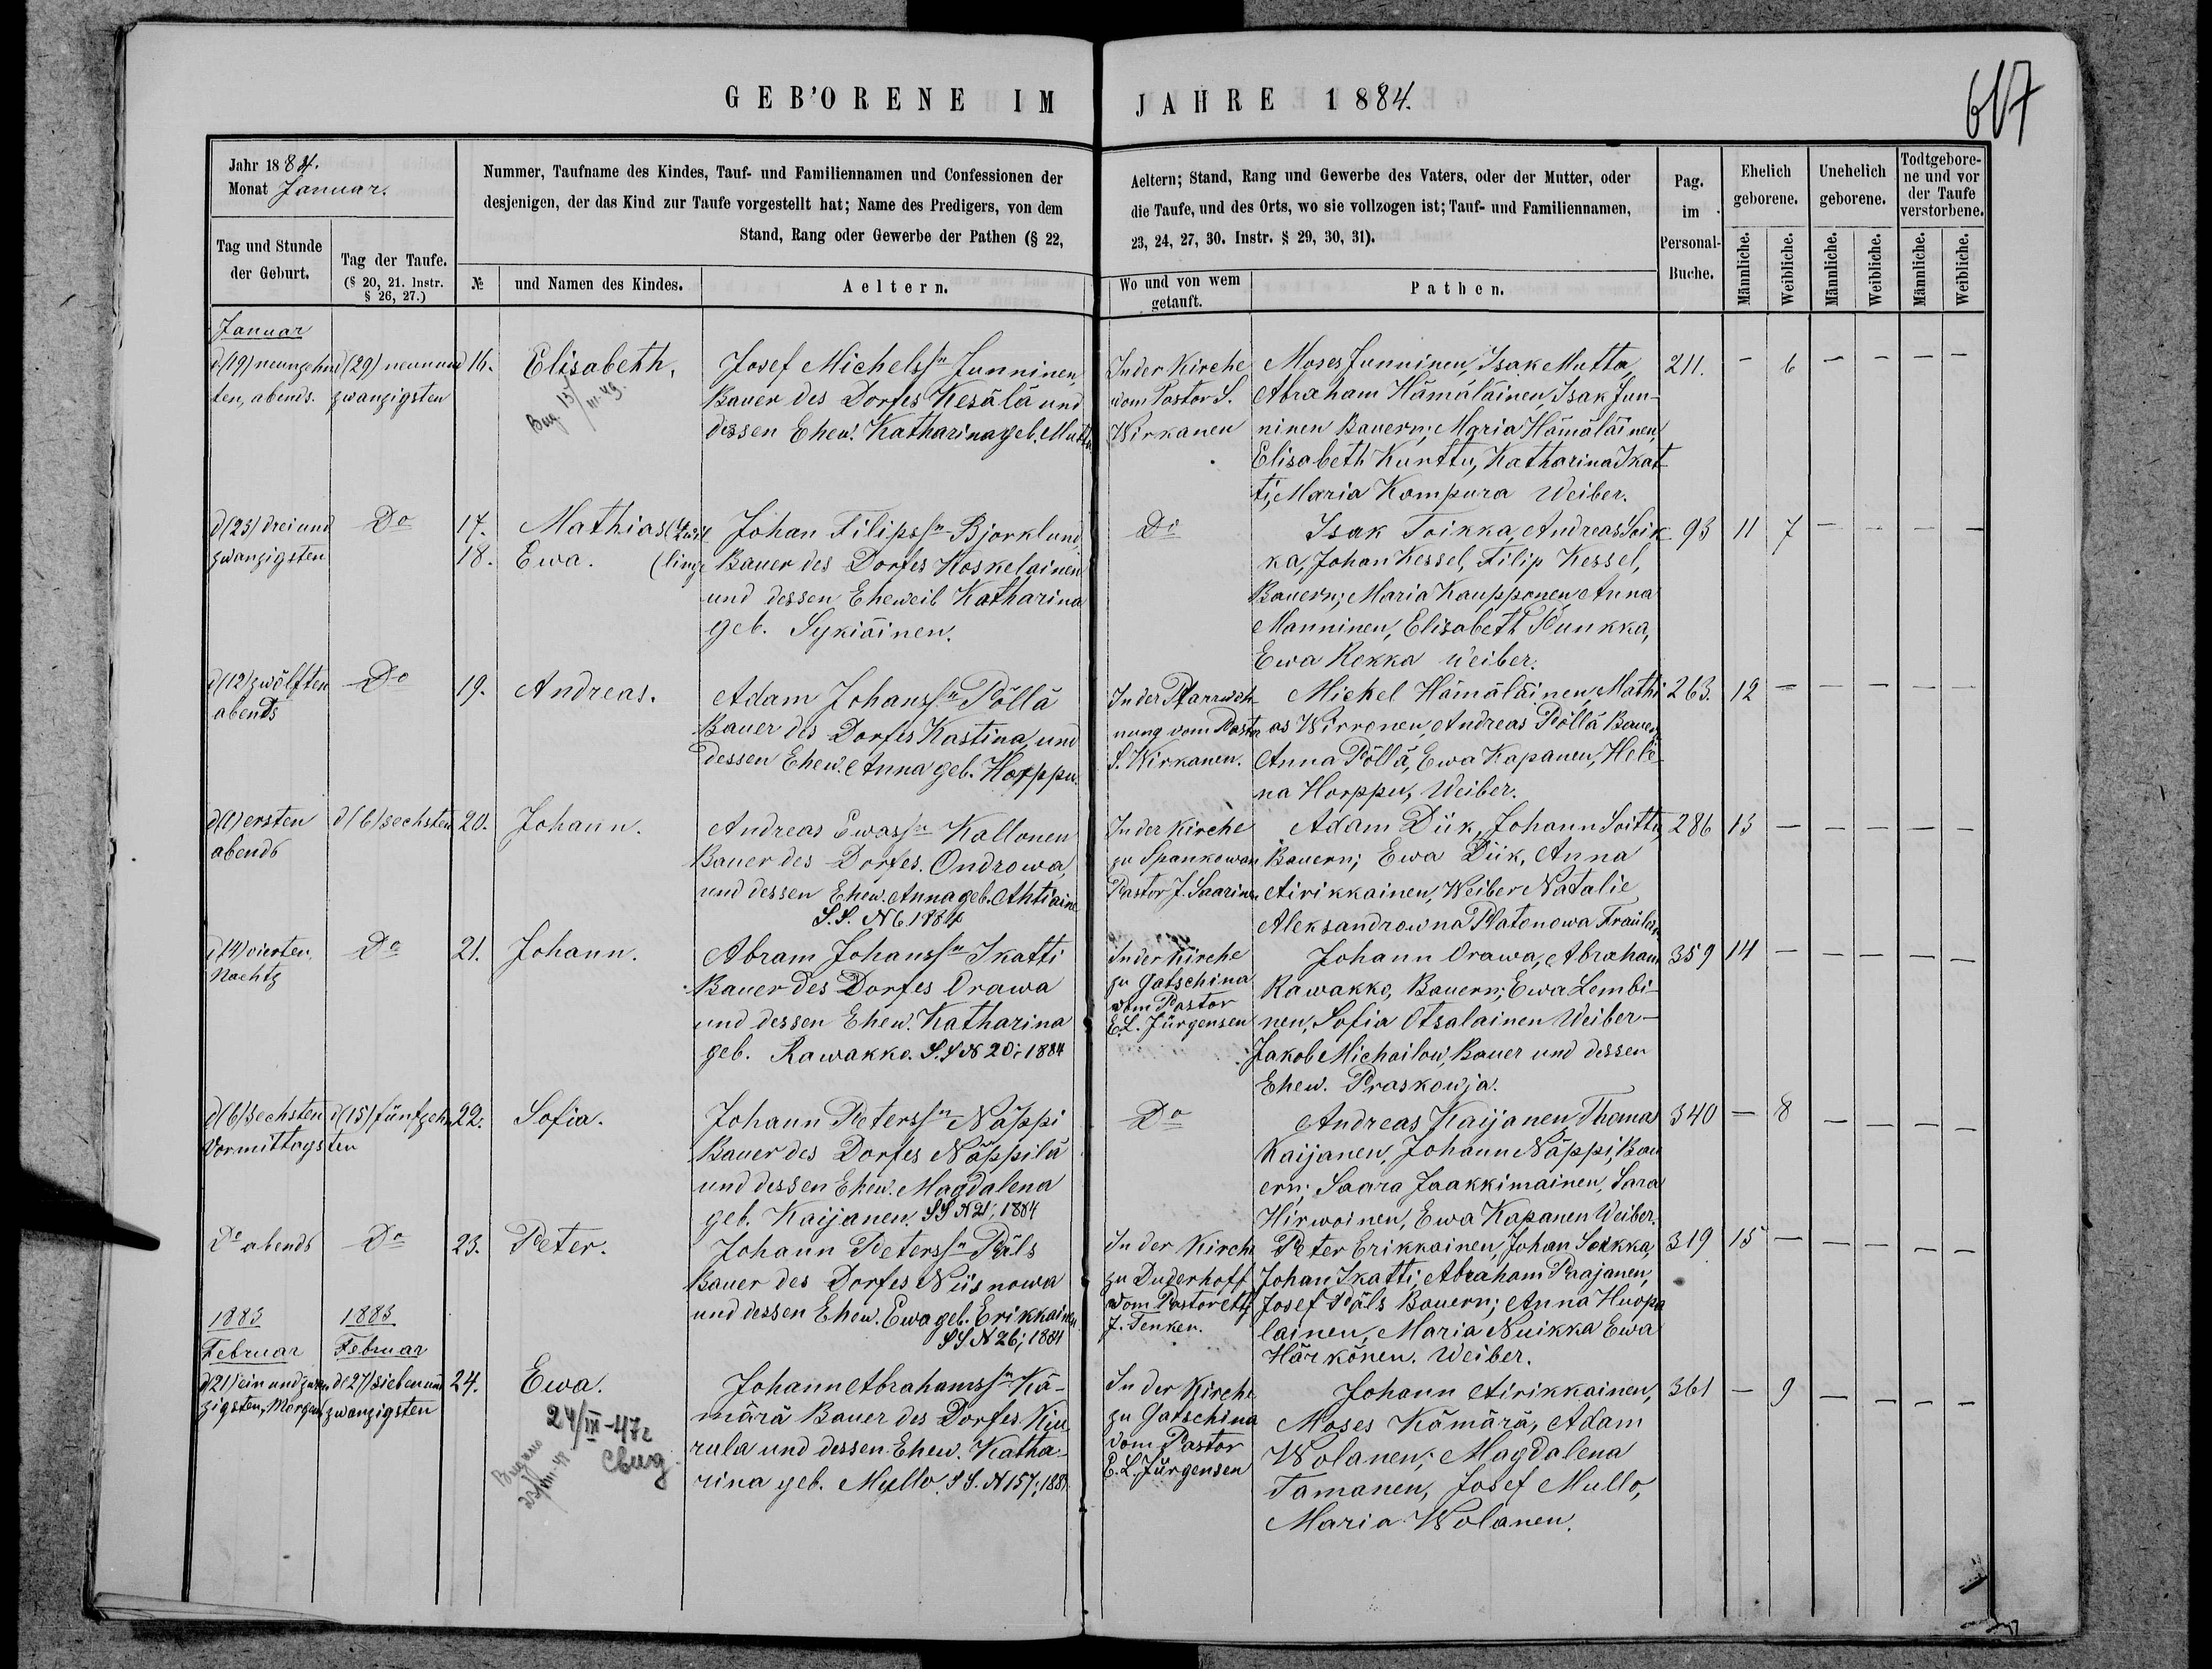 GEB'ORENE IM JAHRE 1884.
617
Jahr 1884.
Monat Januar.
Tag und Stunde
der Geburt.
Tag der Taufe.
(§ 20, 21. Instr.
§ 26, 27.)
Nummer, Taufname des Kindes, Tauf- und Familiennamen und Confessionen der
desjenigen, der das Kind zur Taufe vorgestellt hat; Name des Predigers, von dem
Stand, Rang oder Gewerbe der Pathen (§ 22,
№
und Namen des Kindes.
Aeltern.
Aeltern; Stand, Rang und Gewerbe des Vaters, oder der Mutter, oder
die Taufe, und des Orts, wo sie vollzogen ist; Tauf- und Familiennamen,
23, 24, 27, 30. Instr. § 29, 30, 31).
Wo und von wem
getauft.
Pathen.
Pag.
im
Personal-
Buche.
Ehelich
geborene.
Unehelich
geborene.
Todtgebore-
ne und vor
der Taufe
verstorbene.
Männliche.
Weibliche.
Männliche.
Weibliche.
Männliche.
Weibliche.
Januar
d(19) neunzehn
ten, abends.
d(29) neunund
zwanzigsten
16.
Elisabeth.
Josef Michelssn Junninen,
Bauer des Dorfes Kesälä und
dessen Ehew. Katharina geb. Mutta
In der Kirche
vom Pastor S.
Wirkanen
Moses Junninen, Isak Mutta,
Abraham Hämäläinen, Isak Jun-
ninen Bauern; Maria Hämäläinen,
Elisabeth Kurttu, Katharina Ikat-
ti, Maria Kompura Weiber.
211. - 6 - - - -
d(23) drei und
zwanzigsten
Do
17. Mathias (Zwil
18. Ewa. (linge
Johan Filipssn Bjorklund,
Bauer des Dorfes Koskelainen
und dessen Eheweib Katharina
geb. Sykiäinen.
Do
Isak Toikka, Andreas Soik
ka, Johan Kessel, Filip Kessel,
Bauern; Maria Kaupponen, Anna
Manninen, Elisabeth Punkka,
Ewa Rokka Weiber.
93 11 7 - - - -
d(12) zwölften
abends
Do
19.
Andreas.
Adam Johanssn Pöllä
Bauer des Dorfes Kastina und
dessen Ehew. Anna geb. Horppu.
In der Pfarrwoh
nung vom Pastor
S. Wirkanen.
Michel Hämäläinen, Mathi
as Wirronen, Andreas Pöllä Bauern
Anna Pöllä, Ewa Kapanen, Hele-
na Horppu, Weiber.
263. 12 - - - - -
d(1) ersten
abends
d(6) sechsten
20.
Johann.
Andreas Ewassn Kallonen
Bauer des Dorfes Ondrowa,
und dessen Ehew. Anna geb. Ahtiaine
S.S. N 6 1884
In der Kirche
zu Spankowan
Pastor J. Saarinen
Adam Diik, Johann Soittu,
Bauern; Ewa Diik, Anna
Airikkainen, Weiber Natalie
Aleksandrowna Platonowa Fräulein
286 13 - - - - -
d(4) vierten
Nachts
Do
21.
Johann.
Abram Johanssn Ikatti
Bauer des Dorfes Orawa
und dessen Ehew. Katharina
geb. Rawakko. S.S N 20; 1884
In der Kirche
zu Gatschina
vom Pastor
E.L. Jürgensen
Johann Orawa, Abraham
Rawakko, Bauern; Ewa Lembi-
nen, Sofia Otsalainen Weiber-
Jakob Michailow, Bauer und dessen
Ehew. Praskowja.
359 14 - - - - -
d(6) sechsten
Vormittags
d(15) fünfzehn
ten
22.
Sofia.
Johann Peterssn Näppi
Bauer des Dorfes Näppilä
und dessen Ehew. Magdalena
geb. Kaijanen. SS N 21; 1884
Do
Andreas Kaijanen, Thomas
Kaijanen, Johann Näppi, Bau
ern; Saara Jaakkimainen, Sara
Hirwoinen, Ewa Kapanen Weiber.
340 - 8 - - - -
Do abends
Do
23.
Peter.
Johann Peterssn Päls
Bauer des Dorfes Niisnowa
und dessen Ehew. Ewa geb. Erikkainen
SS N 26; 1884
In der Kirche
zu Duderhoff
vom Pastor
J. Fenken.
Peter Erikkainen, Johan Soikka,
Johan Ikatti, Abraham Paajanen,
Josef Päls Bauern; Anna Huopa
lainen, Maria Nuikka Ewa
Härkönen. Weiber.
319 15 - - - - -
1883
Februar
1883
Februar
d(21) ein und zwan
zigsten, Morgens
d(27) sieben und
zwanzigsten
24.
Ewa.
24/III-47г
Johann Abrahamssn Kä-
märä Bauer des Dorfes Kiu
rula und dessen Ehew. Katha-
rina geb. Mullo. S.S. N 157; 188
In der Kirche
zu Gatschina
vom Pastor
E.L. Jürgensen
Johann Airikkainen,
Moses Kämärä, Adam
Wolanen; Magdalena
Tamanen, Josef Mullo,
Maria Wolanen.
361 - 9 - - - -